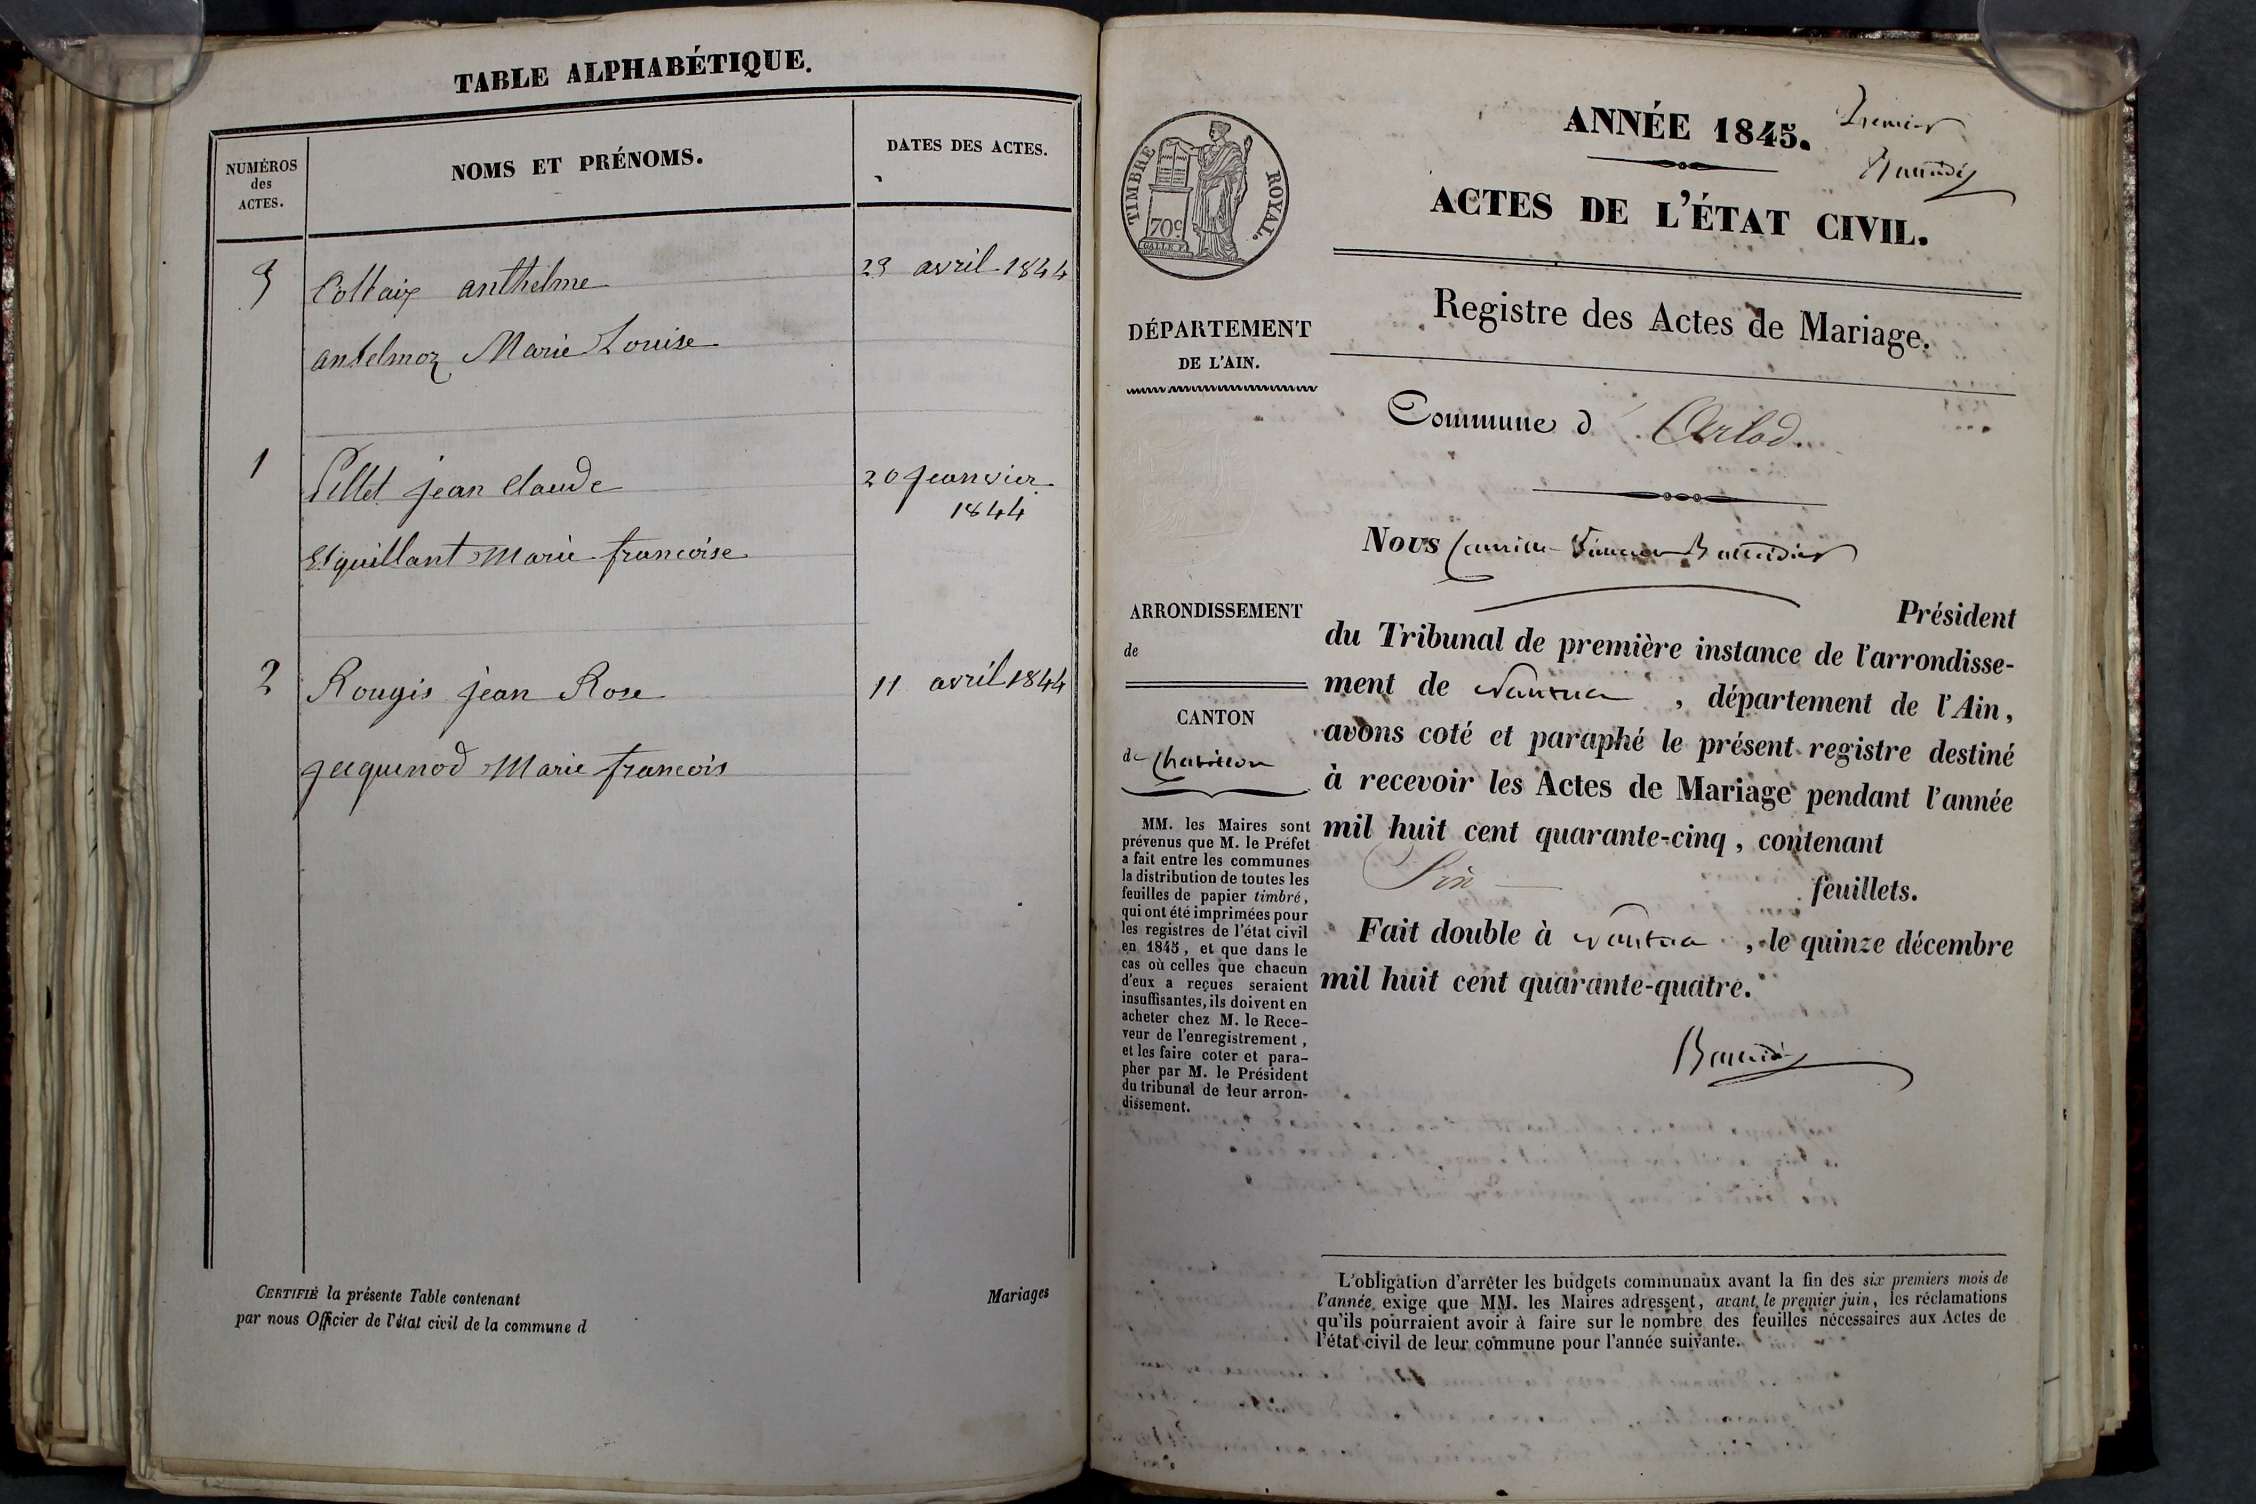 TABLE ALPHABÉTIQUE.
NUMÉROS
des
ACTES.
NOMS ET PRÉNOMS.
DATES DES ACTES.
3 Collaix anthelme 23 avril 1844
antelmoz Marie Louise
1 Pellet jean Claude 20 jeanvier
1844
Etquillant Marie francoise
2 Rougis jean Rose 11 avril 1844
jacquinod Marie francois
CERTIFIÉ la présente Table contenant Mariages
par nous Officier de l'état civil de la commune d
TIMBRE ROYAL.
70c
ANNÉE 1845.
Premier
ACTES DE L'ÉTAT CIVIL.
Registre des Actes de Mariage.
DÉPARTEMENT
DE L'AIN.
Commune d'Arlod.
Nous Camille
ARRONDISSEMENT
de
CANTON
de Chatillon
MM. les Maires sont
prévenus que M. le Préfet
a fait entre les communes
la distribution de toutes les
feuilles de papier timbré,
qui ont été imprimées pour
les registres de l'état civil
en 1845, et que dans le
cas où celles que chacun
d'eux a reçues seraient
insuffisantes, ils doivent en
acheter chez M. le Rece-
veur de l'enregistrement,
et les faire coter et para-
pher par M. le Président
du tribunal de leur arron-
dissement.
Président
du Tribunal de première instance de l'arrondisse-
ment de Nantua, département de l'Ain,
avons coté et paraphé le présent registre destiné
à recevoir les Actes de Mariage pendant l'année
mil huit cent quarante-cinq, contenant
Six feuillets.
Fait double à Nantua, le quinze décembre
mil huit cent quarante-quatre.
L'obligation d'arrêter les budgets communaux avant la fin des six premiers mois de
l'année exige que MM. les Maires adressent, avant le premier juin, les réclamations
qu'ils pourraient avoir à faire sur le nombre des feuilles nécessaires aux Actes de
l'état civil de leur commune pour l'année suivante.